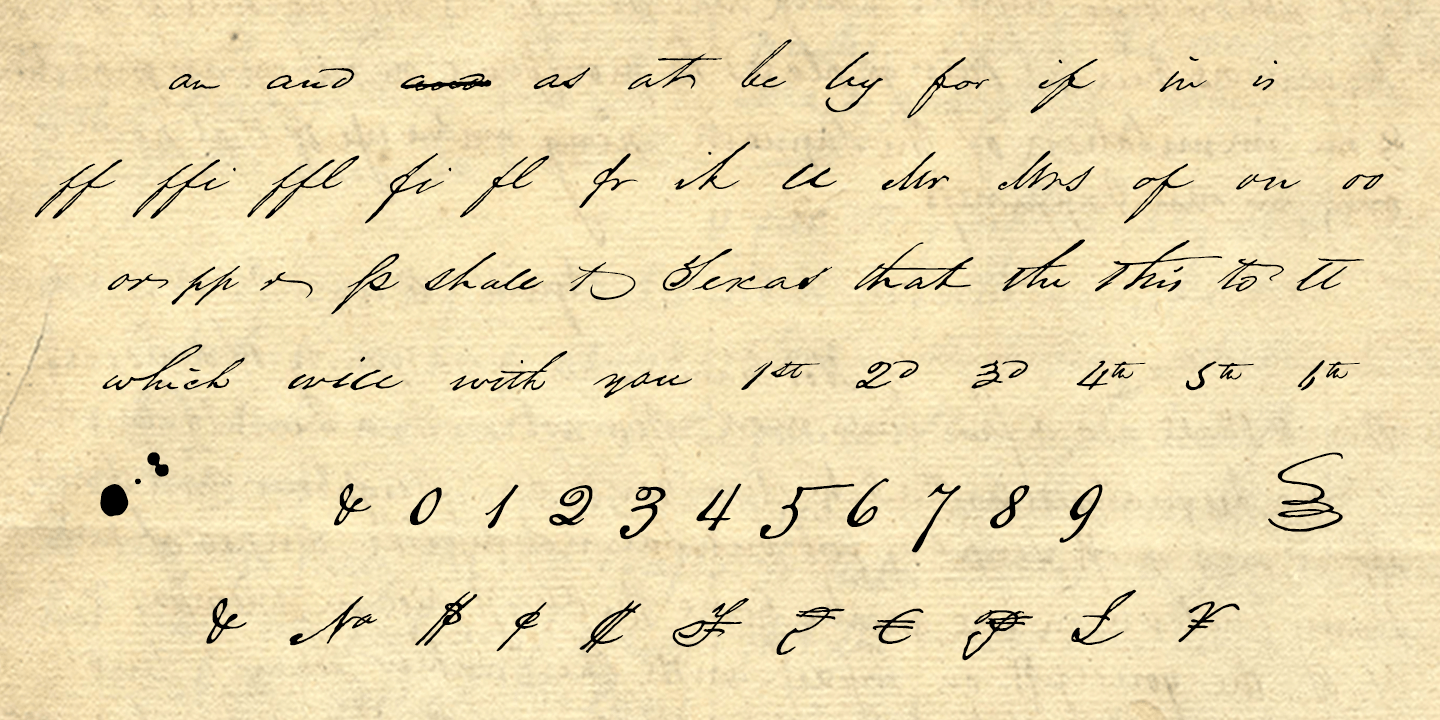 an and as at be by for if in is
ff ffi ffl fi fl fr ik ll Mr Mrs of on oo
or pp r ss shall t Texas that the this to tt
which will with you 1st 2d 3d 4th 5th 6th
& 0 1 2 3 4 5 6 7 8 9
& No $ ¢ ₡ £ ¥ €